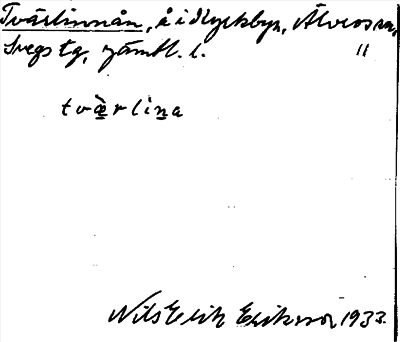 Tvärlinnån, å i Kyrkbyn, Älvros sn,
Svegs tg, Jämtl. l. "
tvæ̀rlìna
Nils Erik Eriksson 1933.